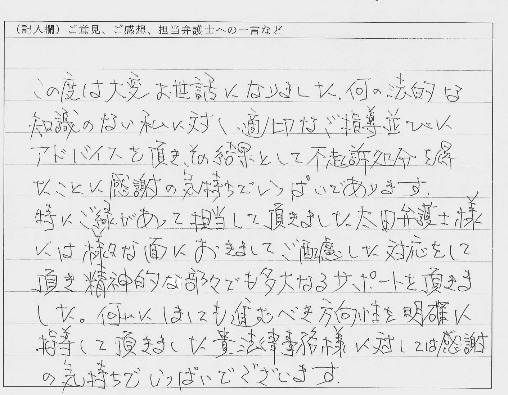 (記入欄)ご意見、ご感想、担当弁護士への一言など
この度は大変お世話になりました。何の法的な
知識のない私に対し、適切なご指導並びに
アドバイスを頂き、その結果として不起訴処分を得
たことに感謝の気持ちでいっぱいであります。
特にご縁があって担当して頂きました太田弁護士様
には様々な面におきましてご配慮した対応をして
頂き精神的な部分でも多大なるサポートを頂きま
した。何にしても進むべき方向性を明確に
指導して頂きました貴法律事務様に対しては感謝
の気持ちでいっぱいでございます。